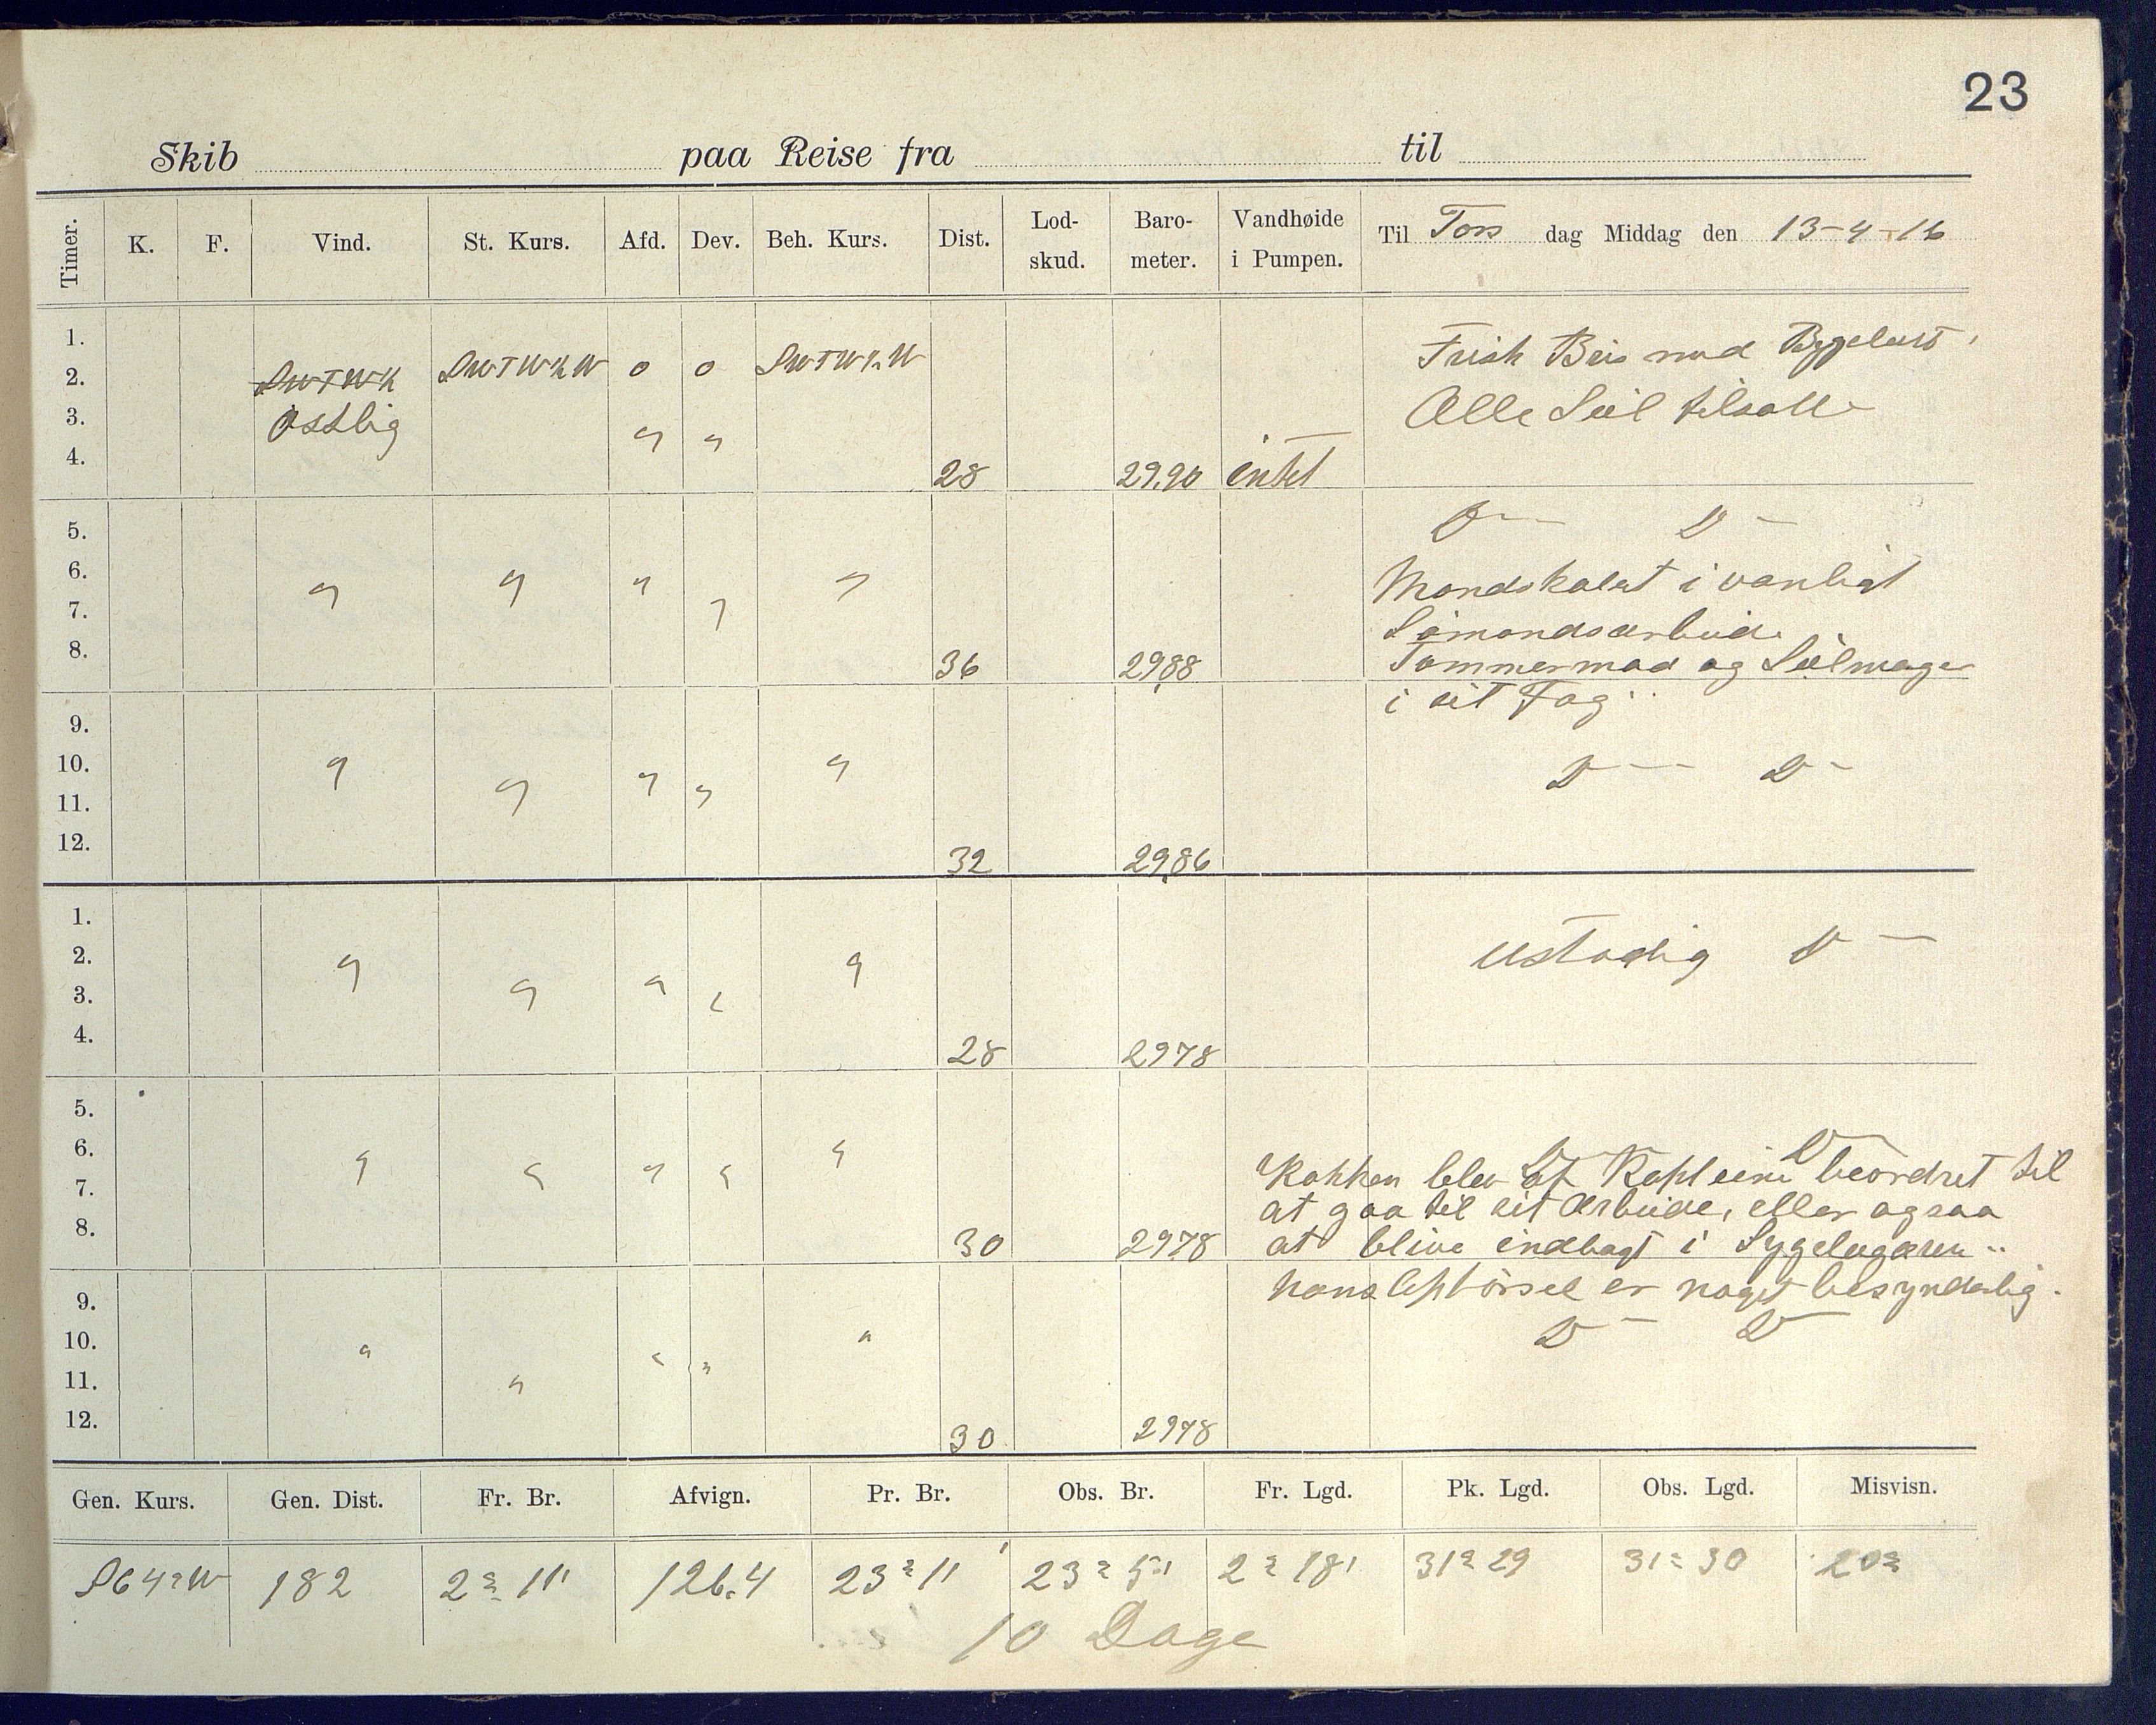 23
Skib paa Reise fra til
Timer. K. F. Vind. St. Kurs. Afd. Dev. Beh. Kurs. Dist. Lod-skud. Baro-meter. Vandhøide i Pumpen. Til Tors dag Middag den 13-4-16
1. Frisk Bris med Bygeluft,
2. SWTWh SWTWhW o o SWTWhW
3. Ostlig " " Alle Seil tilsatte
4. 28 29.90 intet
5. D— D—
6. " " " " Mandskabet i vanligt
7. "
Sømandsarbeide
8. 36 29.88 Tømmermad og Seilmager
i sit Fag..
9.
10. " " " " " D— D—
11.
12. 32 29.86
1.
2. " " " " " ustadig D—
3.
4. 28 2978
5.
D—
6. " " " " " Kokken blev af Kapteinen beordret til
7. at gaa til sit Arbeide, eller ogsaa
8. 30 29.78 at blive indlagt i Sygelugaren..
9. hans Opførsel er noget besynderlig.
10. " " " " " D— D—
11.
12. 30 2978
Gen. Kurs. Gen. Dist. Fr. Br. Afvign. Pr. Br. Obs. Br. Fr. Lgd. Pk. Lgd. Obs. Lgd. Misvisn.
S64°W 182 2° 11' 126.4 23° 11' 23° 5' 2° 18' 31° 29 31° 30 20°
10 Dage